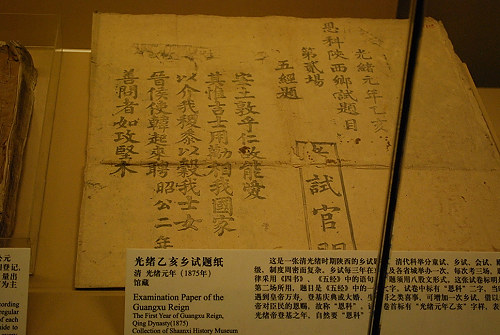 光緒元年乙亥
恩科陝西鄉試題目
第貳場
五經題
安土敦乎仁故能愛
其惟吉士用勱相我國家
以介我稷黍以穀我士女
晉侯使韓起來聘昭公二年
善問者如攻堅木
試官
光绪乙亥乡试题纸
清 光绪元年（1875年）
馆藏
Examination Paper of the
Guangxu Reign
The First Year of Guangxu Reign,
Qing Dynasty(1875)
Collection of Shaanxi History Museum
这是一张清光绪时期陕西的乡试
清代科举分童试、乡试、会试、
级，制度周密而复杂。乡试每三年在
及各省城举办一次，每次考三场，
律采用《四书》、《五经》中的语句
题须用八股文形式。这张试卷标明是
第二场所用，题目是《五经》中的一
文字。试卷中标有“恩科”二字，当
遇到皇帝万寿、登基庆典或大婚、
之类喜事，可增加一次乡试，借以
帝对臣民的恩赐，故称“恩科”。
卷首标有“光绪元年乙亥”字样，
光绪帝登基之年，自然要“恩科”
公元
登记，
量出
为主
cording
regular
of each
ide to